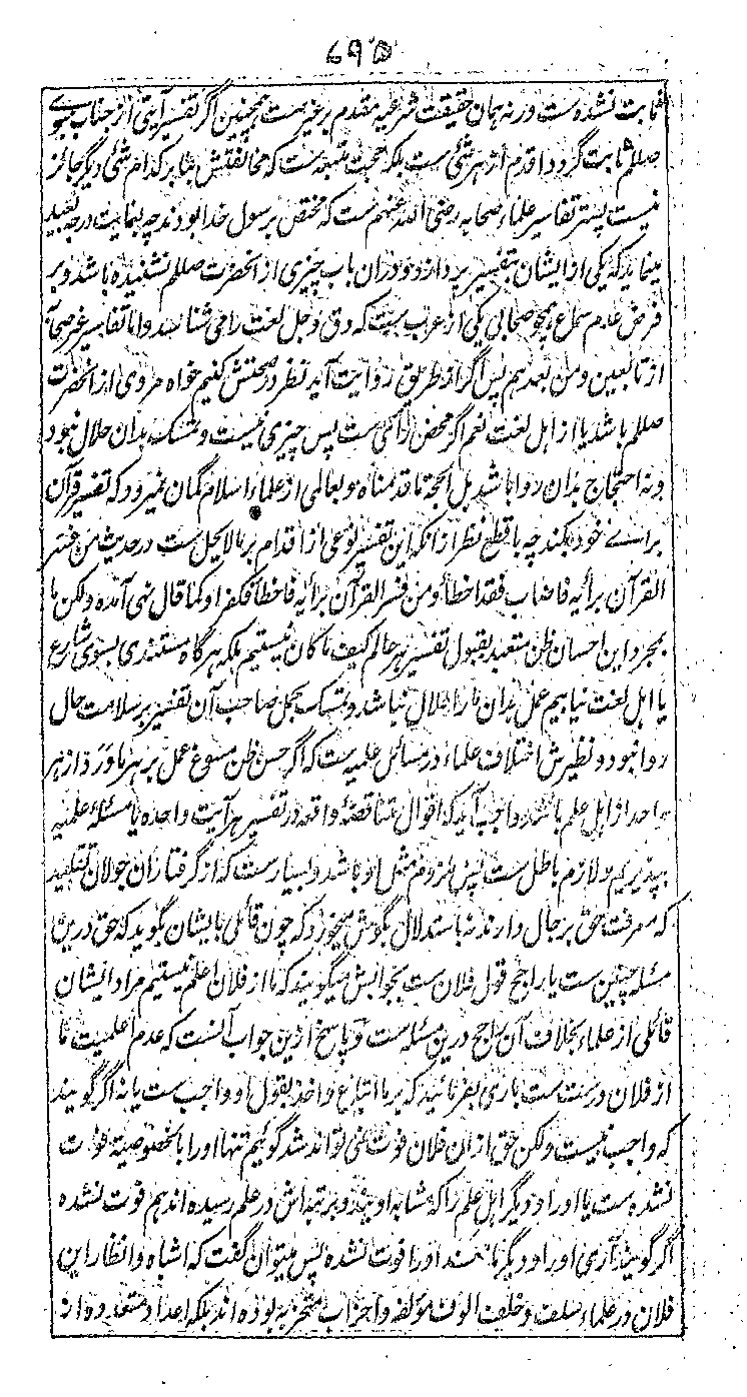 ۶۹۵
ثابت نشده ست ورنه همان حقیقت شرعیه مقدم بر غیر ست همچنین اگر تفسیر آیتی از جناب نبوی
صللم ثابت گردد اقدم از هر شئ ست بلکه حجت متبعه ست که مخالفتش بنا بر کدام شئ دیگر جائز
نیست پستر تفاسیر علماء صحابه رضی الله عنهم ست که مختص برسول خدا بودند چه بغایت درجه بعید
مینماید که یکی از ایشان بتفسیر پردازد و دران باب چیزی از آنحضرت صللم نشنیده باشد و بر
فرض عدم سماع همچو صحابی یکی از عرب ست که دق و جل لغت را می شناسد و اما تفاسیر غیر صحابه
از تابعین و من بعدهم پس اگر از طریق روایت آید نظر در صحتش کنیم خواه مروی از آنحضرت
صللم باشد یا از اهل لغت نعم اگر محض رائی ست پس چیزی نیست و تمسک بدان حلال نبود
و نه احتجاج بدان روا باشد بل الحجة ما قدمناه و بعالمی از علماء اسلام گمان نمیرود که تفسیر قرآن
برای خود بکند چه با قطع نظر از آنکه این تفسیر نوعی از اقدام بر ما لا یحل ست در حدیث من فسر
القرآن برأیه فاصاب فقد اخطأ ومن فسر القرآن برأیه فاخطأ فکفر او کما قال نهی آمده ولکن ما
بمجرد این احسان ظن متعبد بقبول تفسیر هر عالم کیف ما کان نیستیم بلکه هرگاه مستندی بسوی شارع
یا اهل لغت نیابیم عمل بدان ما را حلال نباشد و تمسک بحمل صاحب آن تفسیر بر سلامت حال
روا نبود و نظیرش اختلاف علماء در مسائل علمیه ست که اگر حسن ظن مسوغ عمل بر هر ما ورد از هر
واحد از اهل علم باشد واجب آید که اقوال متناقضه واقعه در تفسیر هر آیت واحده یا مسئله علمیه
بپذیریم و لازم باطل ست پس ملزوم مثل او باشد و بسیارست که از گرفتاران جولان تقلید
که معرفت حق برجال دارند نه باستدلال بگوش میخورد که چون قائلی بایشان بگوید که حق درین
مسئله چنین ست یا راجح قول فلان ست بجوابش میگویند که ما از فلان اعلم نیستیم مراد ایشان
قائلی از علماء بخلاف آن راجح درین مسئله ست و پاسخ ازین جواب آنست که عدم اعلمیت ما
از فلان درست ست باری بفرمائید که بر ما اتباع و اخذ بقول او واجب ست یا نه اگر گویند
که واجب نیست ولکن حق از ان فلان فوت نمی تواند شد گوئیم تنها او را بالخصوصیة فوات
نشده ست یا او را و دیگر اهل علم را که مشابه اویند و برتبه اش در علم رسیده اند هم فوت نشده
اگر گویند آری او را و دیگر مانند او را فوت نشده پس میتوان گفت که اشباه و انظار این
فلان در علماء سلف و خلف الوف مؤلفه و احزاب متحزبه بوده اند بلکه اعداد متعدده از